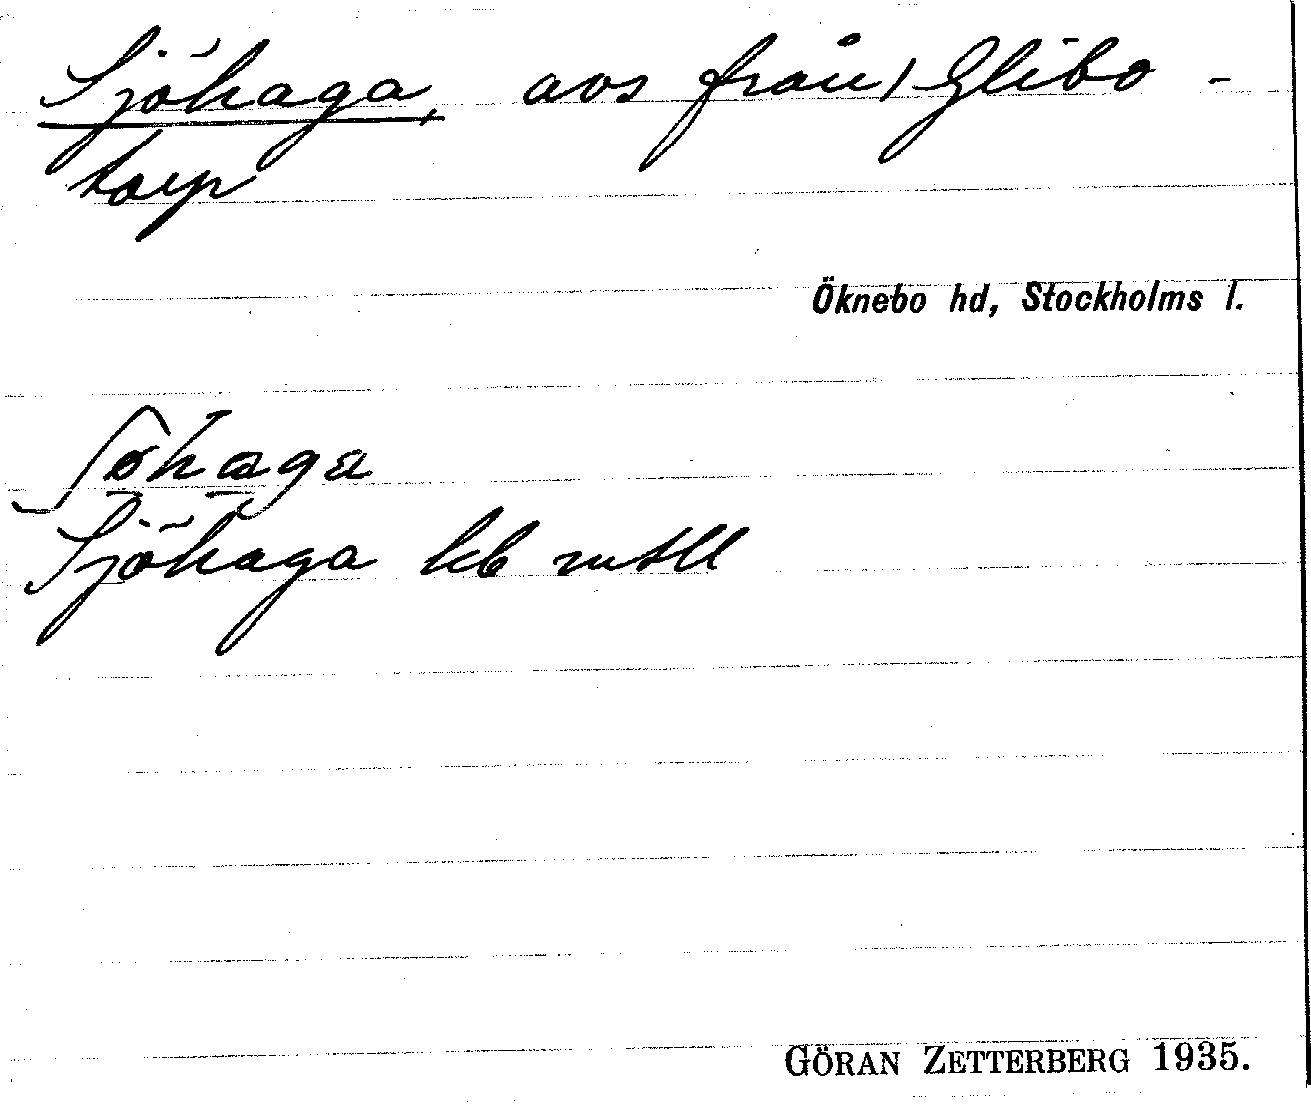 Sjöhaga, avs från) Glibo-
torp
Öknebo hd, Stockholms l.
ʃøhaga
Sjöhaga kb mtll
GÖRAN ZETTERBERG 1935.